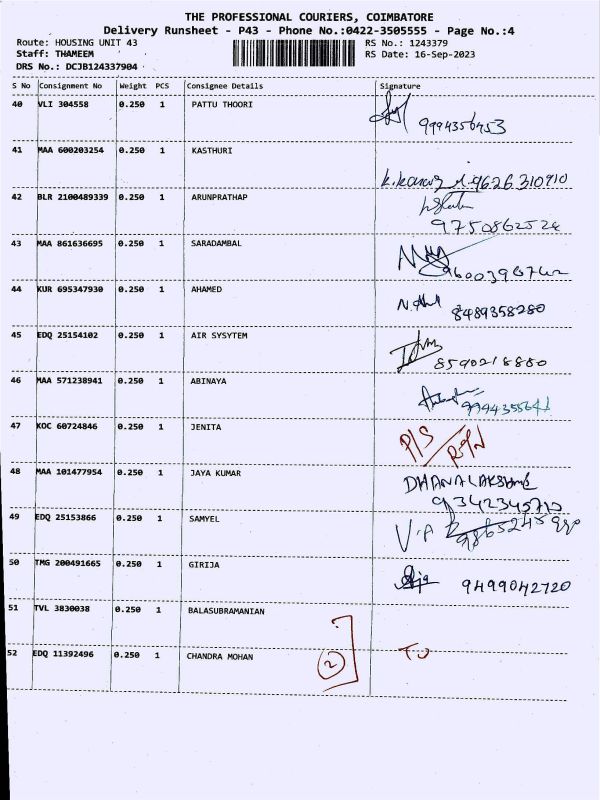 THE PROFESSIONAL COURIERS, COIMBATORE
Delivery Runsheet - P43 - Phone No.:0422-3505555 - Page No.:4
Route: HOUSING UNIT 43 RS No.: 1243379
Staff: THAMEEM RS Date: 16-Sep-2023
DRS No.: DCJB124337904
S No Consignment No Weight PCS Consignee Details Signature
40 VLI 304558 0.250 1 PATTU THOORI
9994356453
41 MAA 600203254 0.250 1 KASTHURI
9626310910
42 BLR 2100489339 0.250 1 ARUNPRATHAP
9750862524
43 MAA 861636695 0.250 1 SARADAMBAL
44 KUR 695347930 0.250 1 AHAMED
8489358280
45 EDQ 25154102 0.250 1 AIR SYSYTEM
8590218880
46 MAA 571238941 0.250 1 ABINAYA
9994355641
47 KOC 60724846 0.250 1 JENITA
P/S
48 MAA 101477954 0.250 1 JAYA KUMAR DHANALAKSHMI
9342345710
49 EDQ 25153866 0.250 1 SAMYEL V.A
50 TMG 200491665 0.250 1 GIRIJA
9499042720
51 TVL 3830038 0.250 1 BALASUBRAMANIAN
52 EDQ 11392496 0.250 1 CHANDRA MOHAN 2